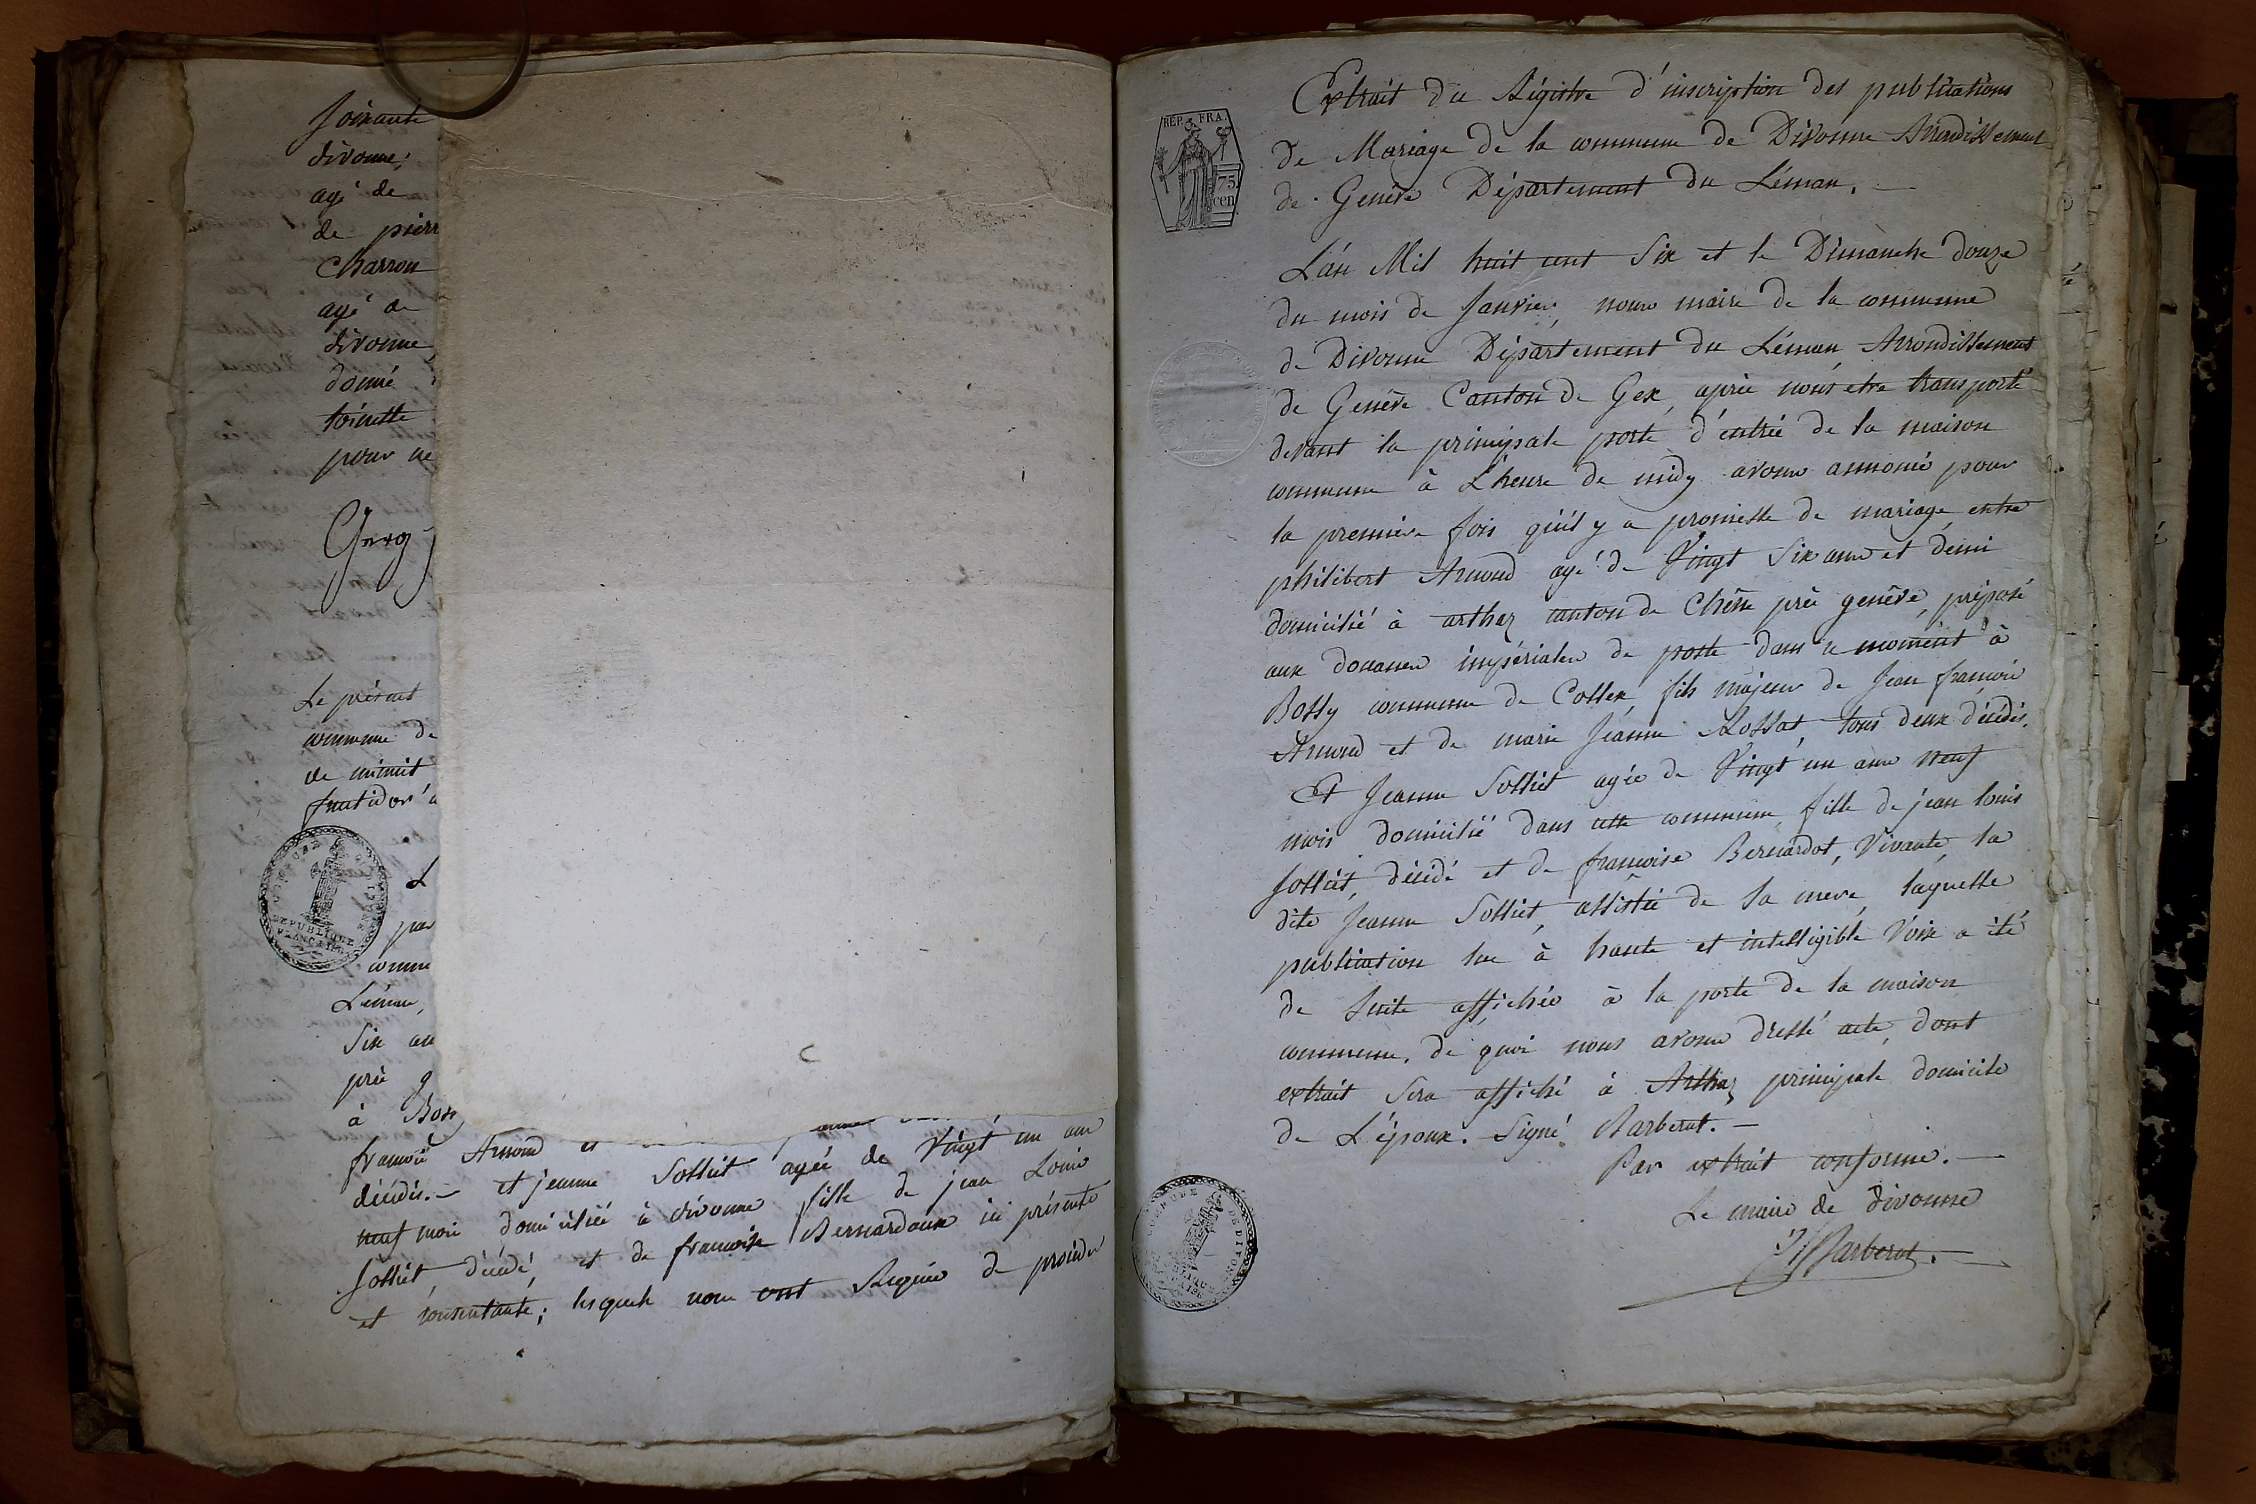 soixante
divonne;
agé de
de pierr
Charron
agé de
divonne
donné
toinette
pour ne
Le présent
commune de
de minuit
fructidor a
L
par
comme
Léman,
Six an
près g
à Bossy
françois Arnoud et
décédés. – et jeanne Solliet agée de Vingt un ans
neuf mois domiciliée à divonne fille de jean Louis
Solliet, décédé, et de françoise Bernardoux ici présente
et consentante; lesquels nous ont Requis de procéder
COMMUNE
REPUBLIQUE
FRANÇAISE
REP. FRA.
75
cen
Extrait du Régistre d'inscription des publications
de Mariage de la commune de Divonne Arrondissement
de Genève Département du Léman. –
L'an Mil huit cent Six et le Dimanche douze
du mois de Janvier, nous maire de la commune
de Divonne Département du Léman Arrondissement
de Genève Canton de Gex, après nous etre transporté
devant la principale porte d'entrée de la maison
commune à L'heure de midy avons annoncé pour
la premiere fois qu'il y a promesse de mariage entre
philibert Arnoud agé de Vingt Six ans et demi
domicilié à arthaz canton de Chêne près genêve, préposé
aux douanes impériales de poste dans ce moment à
Bossy commune de Collex, fils majeur de Jean françois
Arnoud et de marie Jeanne Rossat, tous deux décédés.
Et Jeanne Solliet agée de Vingt un ans neuf
mois domicilié dans cette commune, fille de jean louis
Solliet, décédé et de françoise Bernardot, Vivante, la
dite Jeanne Solliet, assistée de sa mere, laquelle
publication lue à haute et intelligible Voix a été
de Suite affichée à la porte de la maison
commune, de quoi nous avons dressé acte, dont
extrait Sera affiché à Arthaz principale domicile
de L'époux. Signé Barberat. –
Par extrait conforme. –
Le maire de divonne
Barberat. –
COMMUNE DE DIVONNE